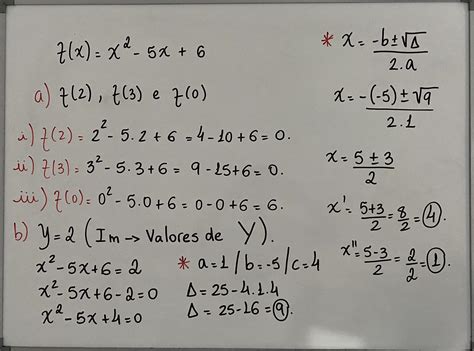 f(x) = x² - 5x + 6
a) f(2), f(3) e f(0)
i) f(2) = 2² - 5.2 + 6 = 4 - 10 + 6 = 0.
ii) f(3) = 3² - 5.3 + 6 = 9 - 15 + 6 = 0.
iii) f(0) = 0² - 5.0 + 6 = 0 - 0 + 6 = 6.
b) y = 2 (Im → Valores de Y).
x² - 5x + 6 = 2
x² - 5x + 6 - 2 = 0
x² - 5x + 4 = 0
* a = 1 / b = -5 / c = 4
Δ = 25 - 4.1.4
Δ = 25 - 16 = 9.
* x = (-b ± √Δ) / 2.a
x = (-(-5) ± √9) / 2.1
x = (5 ± 3) / 2
x' = (5+3) / 2 = 8/2 = 4.
x'' = (5-3) / 2 = 2/2 = 1.